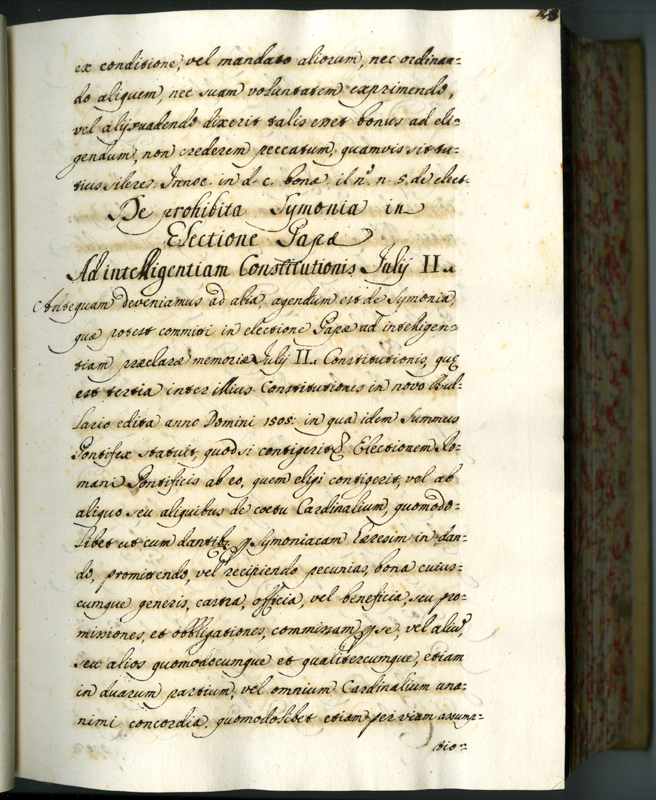 ex conditione, vel mandato aliorum, nec ordinan=
do aliquem, nec suam voluntatem exprimendo,
vel alijs suadendo dixerit talis esset bonus ad eli=
gendum, non crederem peccatum, quamvis sit tu=
tius silere. Innoc. in d. c. bona. il n. 5. de elect.
De prohibita Symonia in
Electione Papæ
Ad intelligentiam Constitutionis Julij II.
Antequam deveniamus ad alia, agendum est de Symonia,
quæ potest committi in electione Papæ ad intelligen=
tiam præclaræ memoriæ Julij II. Constitutionis, quę
est tertia inter illius Constitutiones in novo Bul=
lario edita anno Domini 1505. in qua idem Summus
Pontifex statuit, quod si contigerit Electionem Ro=
mani Pontificis ab eo, quem eligi contigerit, vel ab
aliquo seu aliquibus de coetu Cardinalium, quomodo=
libet ut cum dantibꝫ ꝑ Symoniacam Heresim in dan=
do, promittendo, vel recipiendo pecunias, bona cuius=
cumque generis, castra, officia, vel beneficia, seu pro=
missiones, et obbligationes, commissam ꝑ se, vel aliũ,
seu alios quomodocumque et qualitercumque, etiam
in duarum partium, vel omnium Cardinalium una=
nimi concordia quomodolibet etiam per viam assump=
tio=